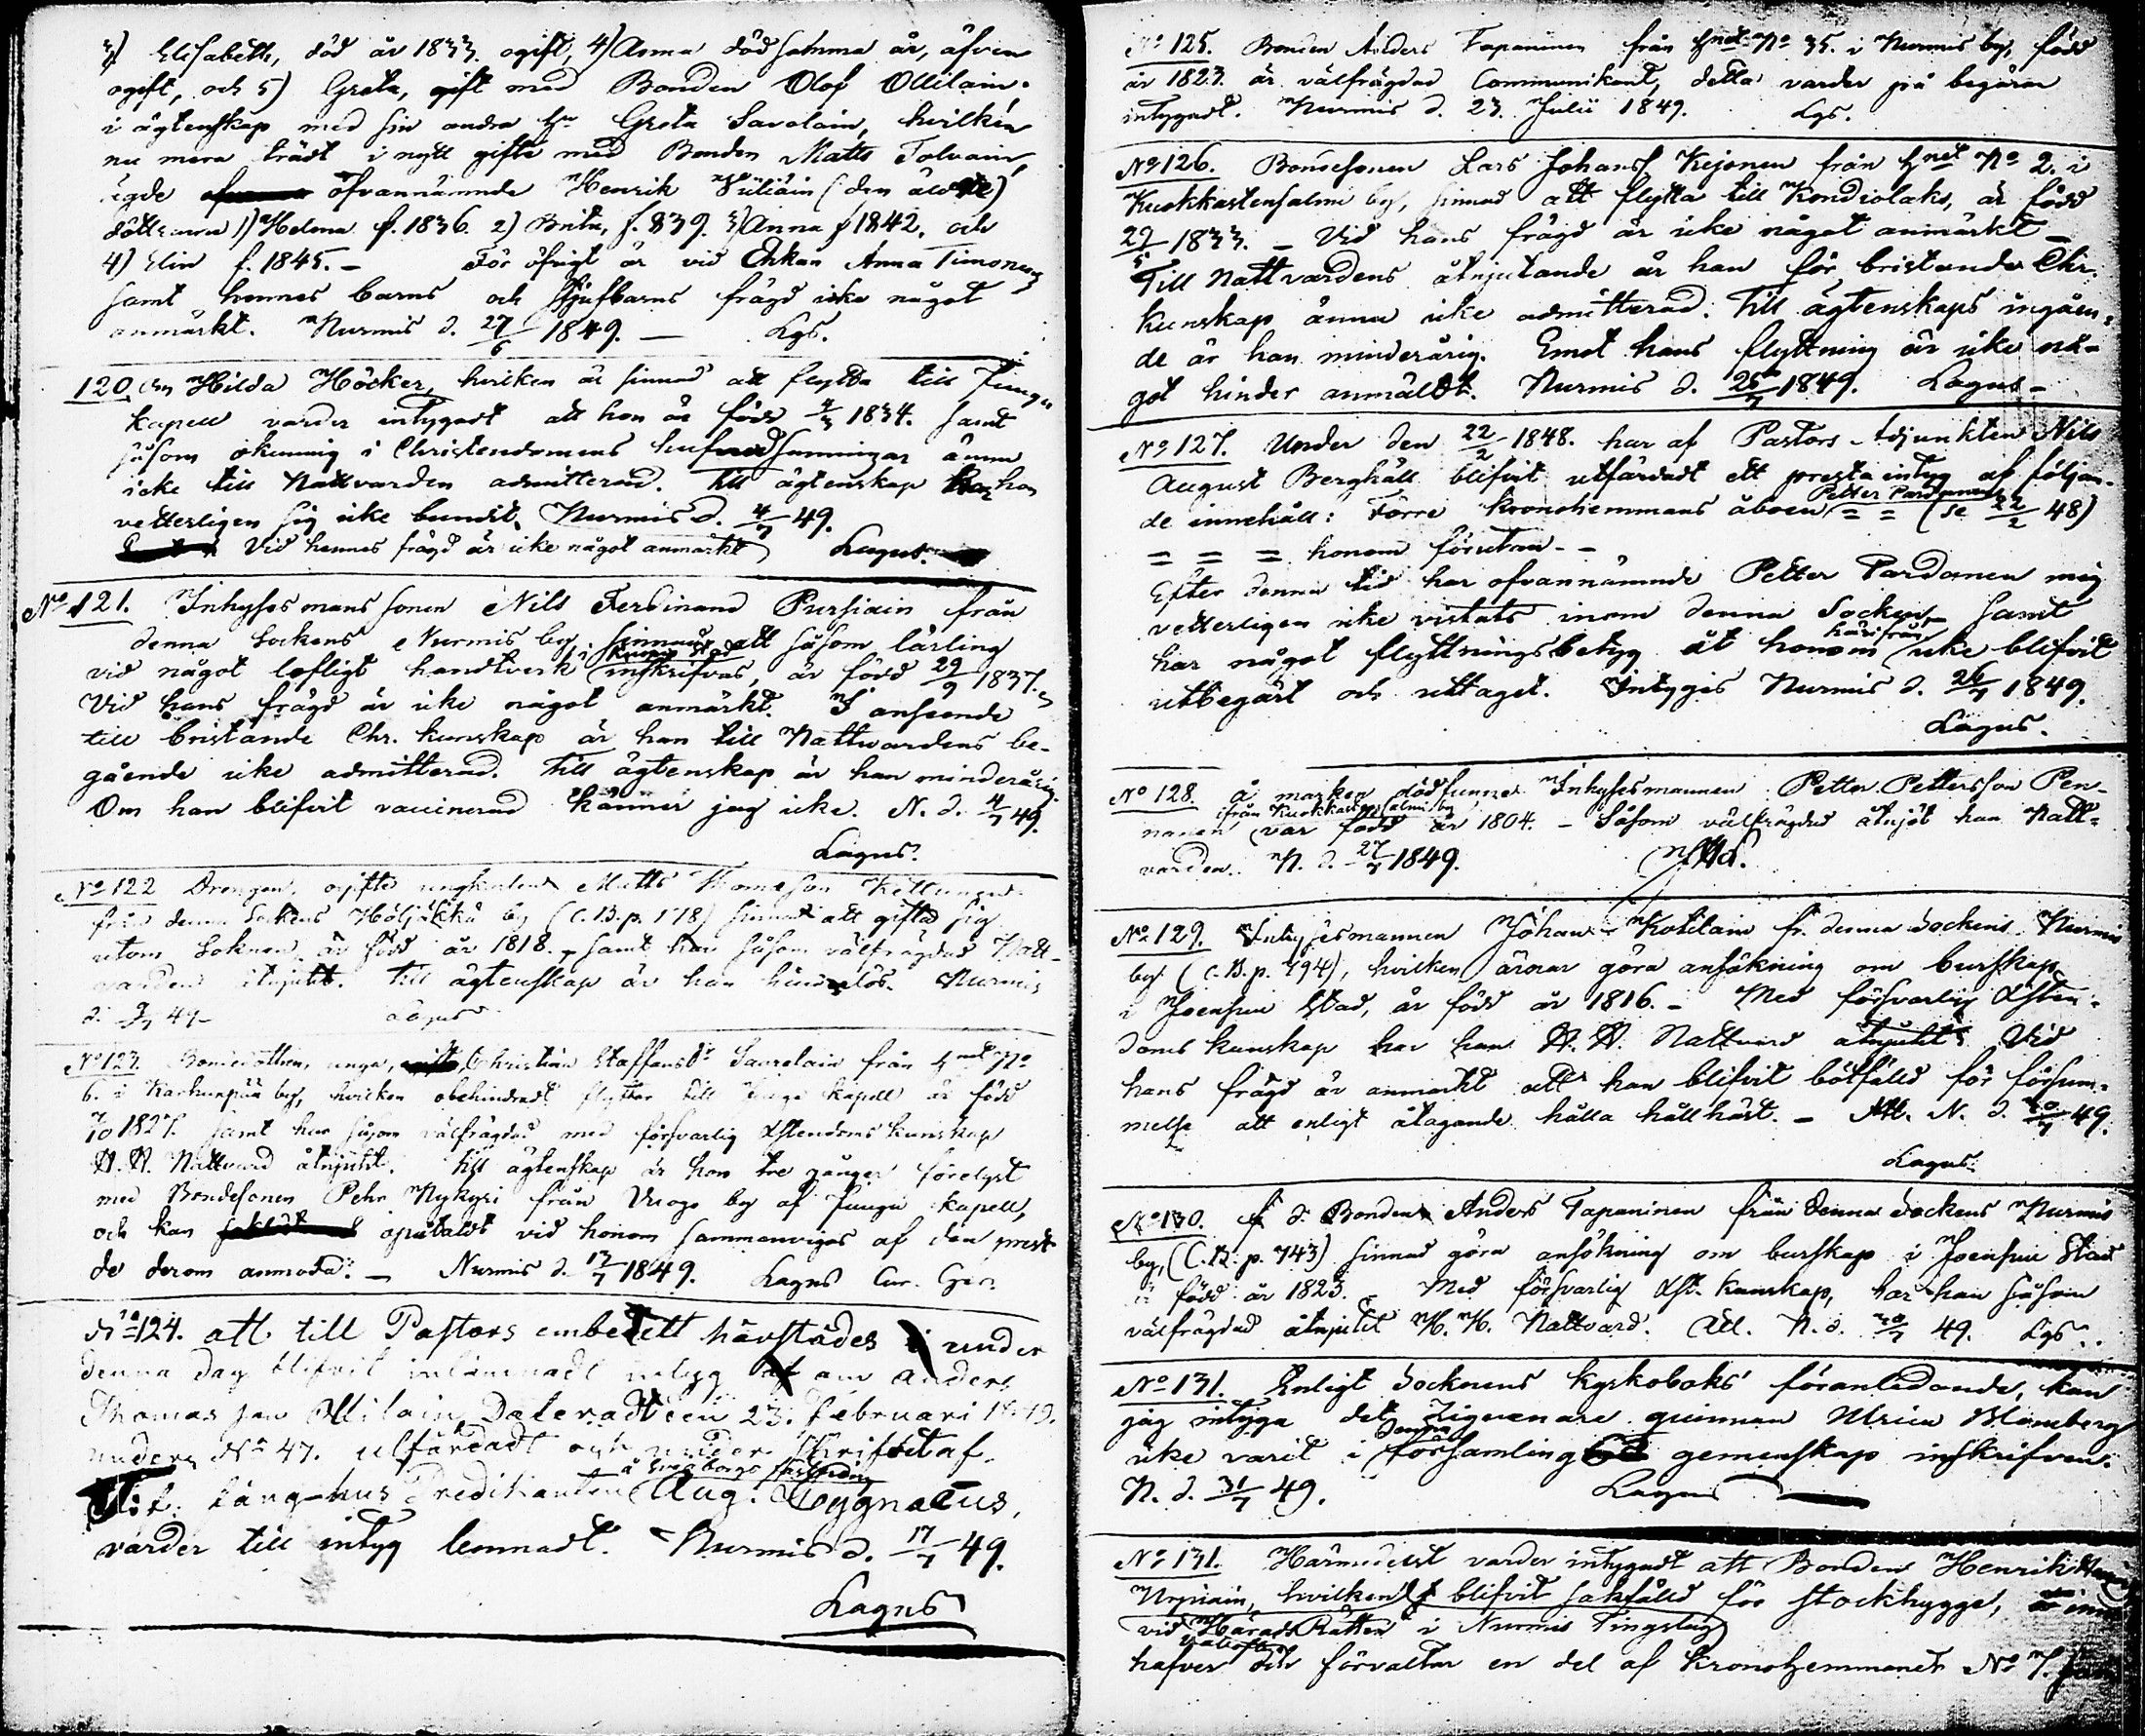 3) Elisabeth, död år 1833. ogift, 4) Anna död samma år, äfven
ogift, och 5) Greta, gift med Bonden Olof Ollilain.
i ägtenskap med sin andra Hu Greta Savolain, hvilken
nu mera trädt i nytt gifte med Bonden Matts Tolvain,
ägde ofvannämnde Henrik (den äldre)
döttrarna 1) Helena f. 1836. 2) Brita, f. 839. 3) Anna f 1842. och
4) Elin f. 1845. – För öfrigt är vid Enkan Anna Timonens
samt hennes barns och Styfbarns frägd icke något
anmärkt. Nurmis d. 27/6 1849. – Lgs.
120. Hilda Höcker, hvilken är sinnad att flytta till Juuga
Kapell varder intygadt att hon är född 4/3 1834. samt
såsom okunnig i Christendomens hufvudsanningar ännu
icke till Nattvarden admitterad. Till ägtenskap har hon
vetterligen sig icke bundit. Nurmis d. 4/7 49.
Vid hennes frägd är icke något anmärkt Lagus.
No 121. Inhyses mans sonen Nils Ferdinand Pursiain från
denna Sockens Nurmis by, sinnad att såsom lärling
vid något lofligt handtverk i Kuopio stad inskrifvas, är född 29/9 1837.
Vid hans frägd är icke något anmärkt. I anseende
till bristande Chr. kunskap är han till Nattvardens be-
gående icke admitterad. Till ägtenskap är han minderårig.
Om han blifvit vaccinerad känner jag icke. N. d. 4/7 49.
Lagus.
No 122 Drengen, ogifte ungkarlen Matts Thomasson Kettunen
från denna Sockens Höljäkkä by (C.B.p. 178) sinnad att gifta sig
utom Soknen, är född år 1818. – samt har såsom välfrägdad Natt-
varden åtnjutit. Till ägtenskap är han hinderslös. Nurmis
d. 49 – Lagus
No 123. Bondedottren, unga, Christina Staffansdr Savolain från Hnet No
6. i Karhunpää by, hvilken obehindradt flyttar till Juuga Kapell är född
1827. samt har såsom välfrägdad med försvarlig Xstendoms kunskap
H. H. Nattvard åtnjutit. Till ägtenskap är hon tre gånger förelyst
med Bondesonen Pehr Nykyri från Vuogo by af Juuga Kapell,
och kan opåtaldt vid honom sammanvigas af den prest
de derom anmoda: – Nurmis d. 17/7 1849. Lagus Cur. Ger.
No 124. att till Pastors embetett härstädes under
denna dag blifvit inlämnadt intyg om Anders
Thomas son Ollilain, Dateradt den 23. Februari 1849.
under No 47. utfärdadt och under Skrifvit af
å Sveaborgs fästning
fäng-hus Predikanten Aug. Cygnæus,
varder till intyg lemnadt. Nurmis d. 17/7 49.
Lagus
No 125. Bonden Anders Tapaninen från Hnet No 35. i Nurmis by, född
år 1823. är välfrägdad Communikant, detta varder på begäran
intygadt. Nurmis d. 23. Julii 1849. Lgs.
No 126. Bondesonen Lars Johanss Kejonen från Hnet No 2. i
Kuokkastensalmi by, sinnad att flytta till Kondiolaks, är född
29/5 1833. – Vid hans frägd är icke något anmärkt –
Till Nattvardens åtnjutande är han för bristande Chr.
kunskap ännu icke admitterad. Till ägtenskaps ingåen-
de är han minderårig. Emot hans flyttning är icke nå-
got hinder anmäldt. Nurmis d. 25/7 1849. Lagus –
No 127. Under den 22/2 1848. har af Pastors-Adjunkten Nils
August Berghäll blifvit utfärdadt ett presta intyg af följan-
de innehåll: Förre Kronohemmans åboen Petter Pardanen = = (se 22/2 48)
= = = honom förutom - -
Efter denna tid har ofvannämnde Petter Pardanen mig
vetterligen icke vistats inom denna Socken, samt
har något flyttningsbetyg åt honom härifrån icke blifvit
utbegärt och uttaget. Intygis Nurmis d. 26/7 1849.
Lagus.
No 128. å marken dödfunne Inhysesmannen Petter Pettersson Pen-
nanen från Kuokkastensalmi by var född år 1804. – Såsom välfrägdad åtnjöt han Natt-
varden. N. d. 27/7 1849.
No 129. Inhysesmannen Johan Kotilain fr. denna Sockens Nurmis
by (C.B.p. 794), hvilken ärnar göra ansökning om burskap
i Joensuu Stad, är född år 1816. – Med försvarlig Xsten-
doms kunskap har han H. H. Nattvard åtnjutit. Vid
hans frägd är anmärkt att han blifvit bötfälld för försum-
melse att enligt åtagande hålla hållhäst. – Att. N. d. 30/7 49.
Lagus.
No 130. f. d. Bonden Anders Tapaninen från denna Sockens Nurmis
by, (C.B.p. 743) sinnad göra ansökning om burskap i Joensuu Stad
är född år 1823. – Med försvarlig Xst. kunskap, har han såsom
välfrägdad åtnjutit H. H. Nattvard. Att. N. d. 30/7 49. Lgs.
No 131. Enligt Socknens kyrkoboks föranledande, kan
jag intyga det Zigenare quinnan Ulrica Blomberg
icke varit i denna församling gemenskap inskrifven.
N. d. 31/7 49. Lagus
No 131. Härmedelst varder intygadt att Bonden Henrik
Urpiain, hvilken blifvit sakfälld för stockhygge,
vid Härads Rätten i Nurmis Tingslag
hafver och förvaltar en del af Kronohemmanet No 7.